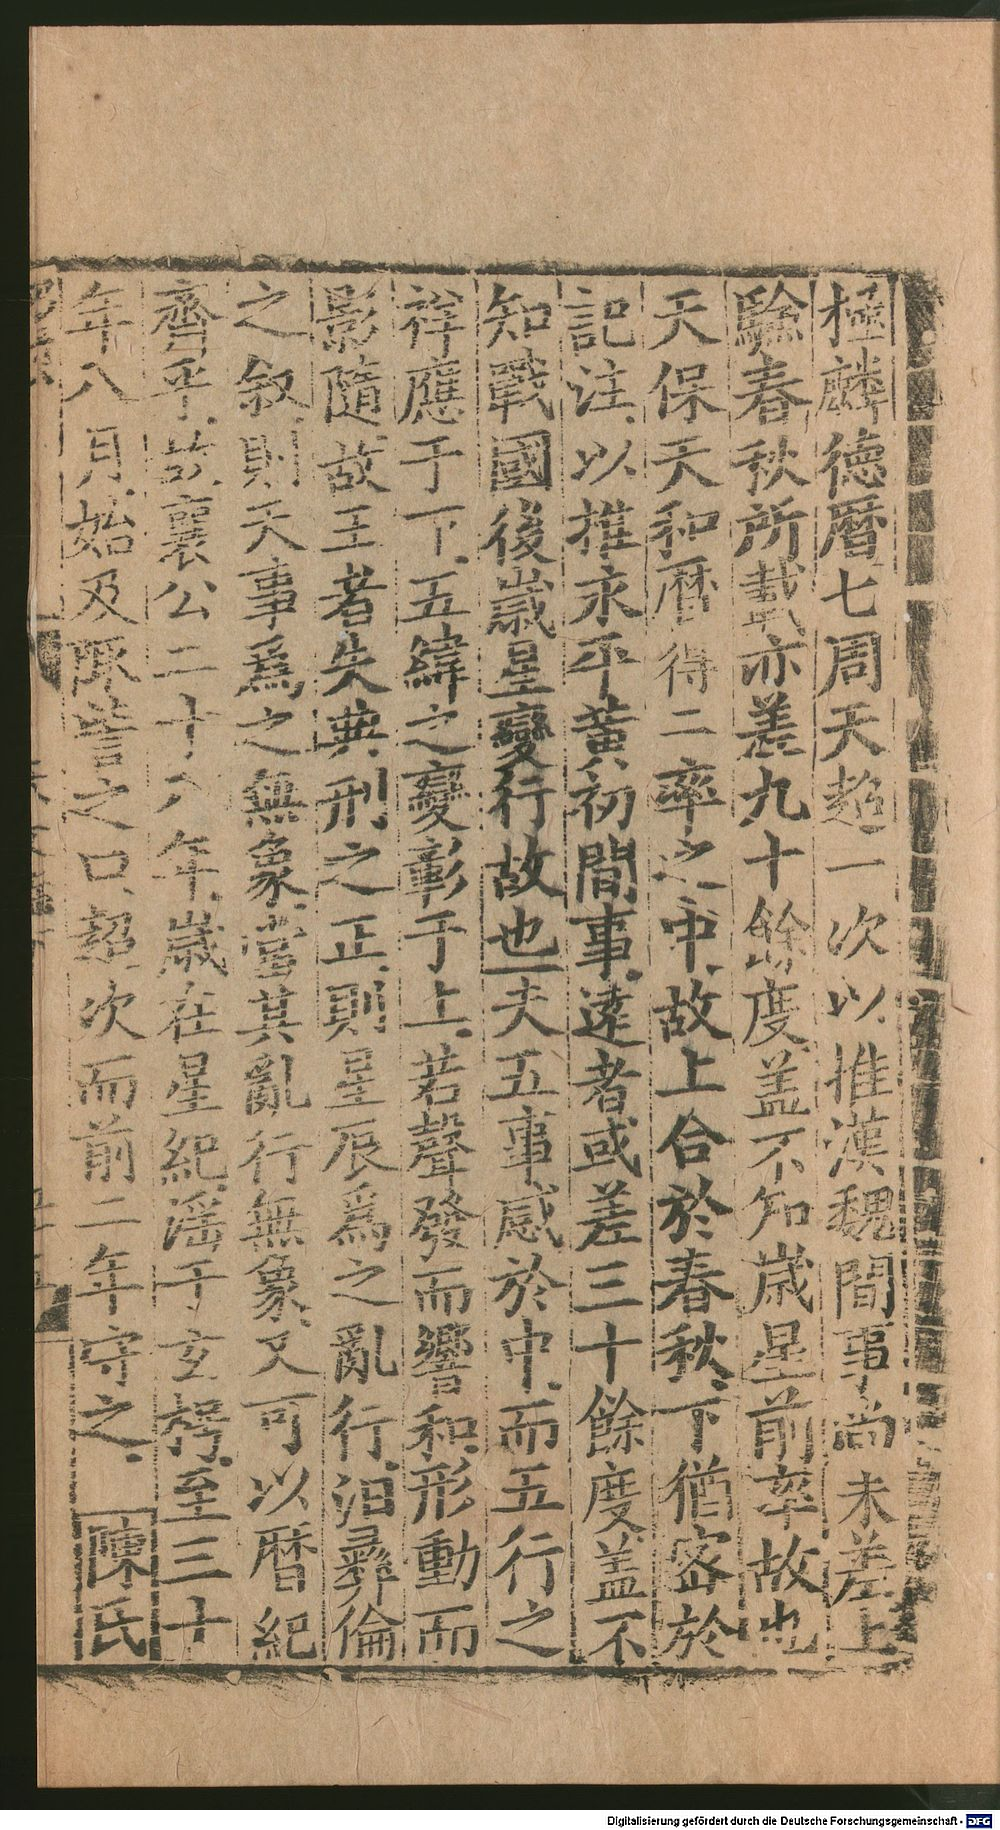 極麟德曆七周天超一次以推漢魏間事尚未差上
驗春秋所載亦差九十餘度蓋不知歲星前率故也
天保天和曆得二率之中故上合於春秋下猶密於
記注以推永平黃初間事遠者或差三十餘度蓋不
知戰國後歲星變行故也夫五事感於中而五行之
祥應于下五緯之變彰于上若聲發而響和形動而
影隨故王者失典刑之正則星辰為之亂行汩彝倫
之叙則天事為之無象當其亂行無象又可以曆紀
齊乎故襄公二十八年歲在星紀滛于玄枵至三十
年八月始及陬訾之口超次而前二年守之 陳氏
Digitalisierung gefördert durch die Deutsche Forschungsgemeinschaft - DFG